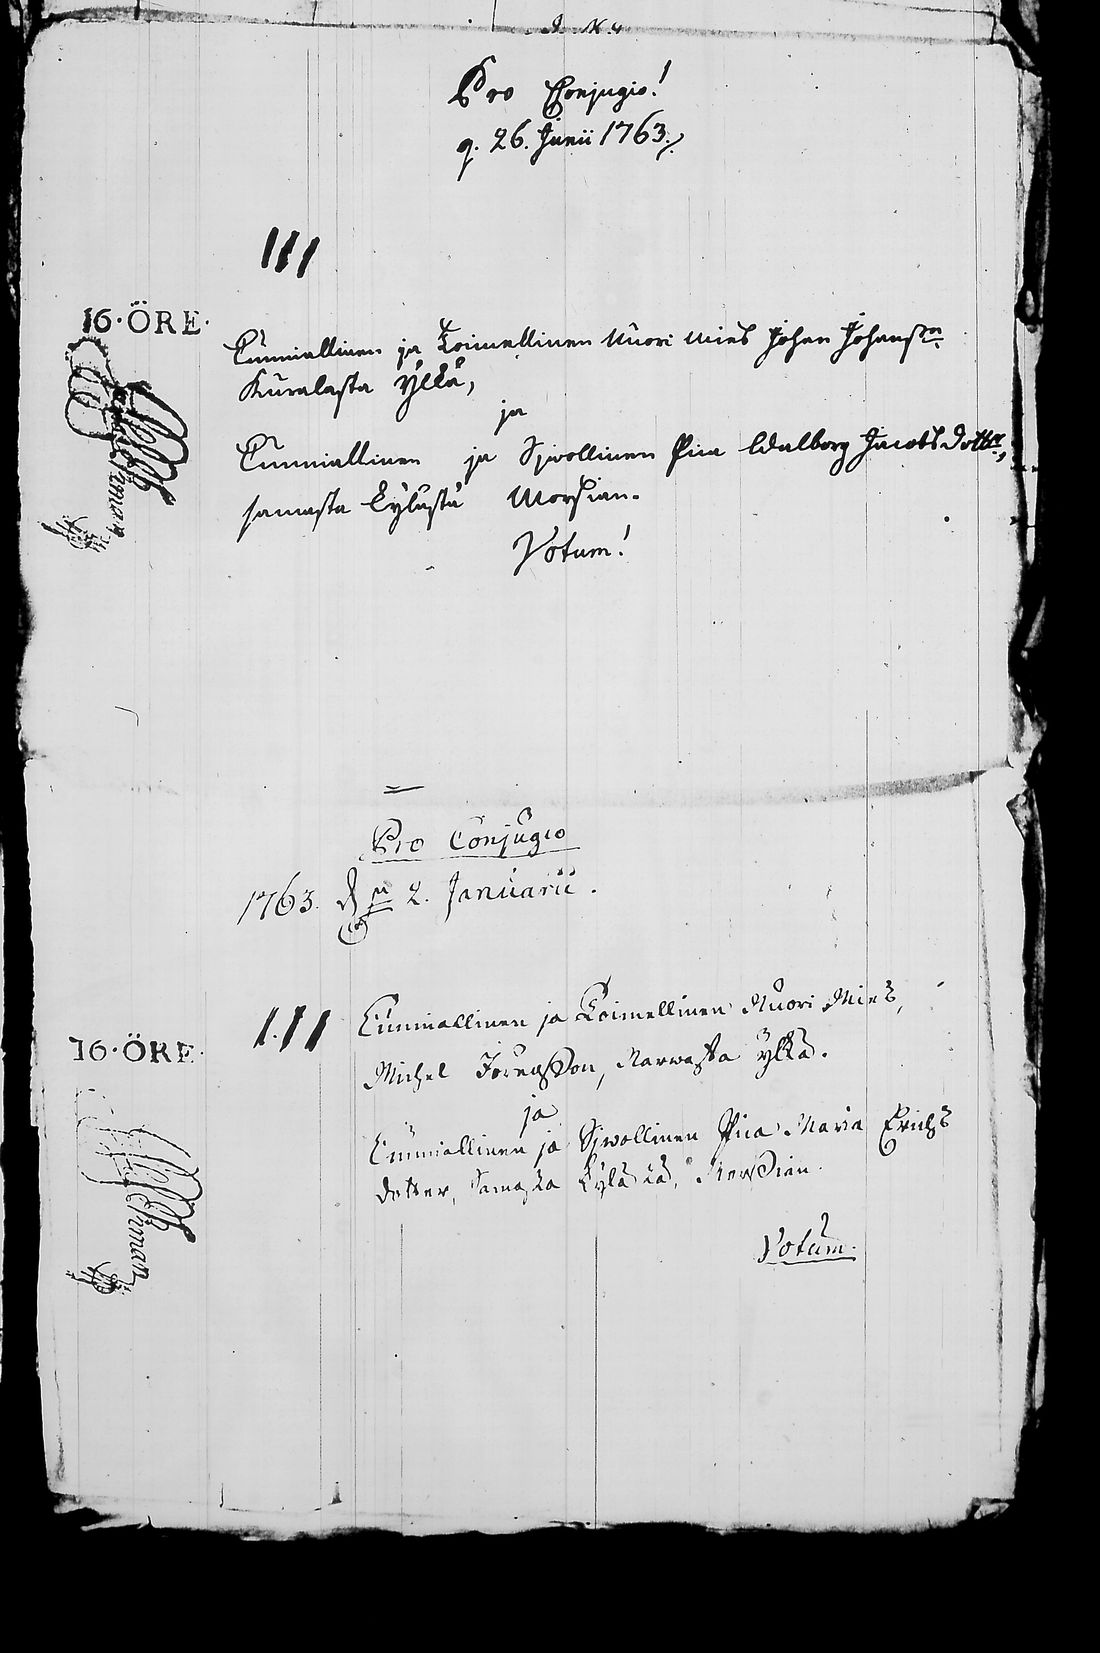 Pro Conjugio!
q. 26. Junii 1763.
III
16·ÖRE·
Cunniallinen ja Toimellinen Nuori Mies Johan Johanss:n
Kuralasta Ylkä,
ja
Cunniallinen ja Sjwollinen Pica Walborg Jacobs dott:r,
samasta Kylästä Morsian.
Votum!
Pro Conjugio
1763. 2. Januarii.
I.II
16·ÖRE·
Cunniallinen ja Toimellinen Nuori Mies,
Michel Jöransson, Narwasta ylkä.
ja
Cunniallinen ja Sjwollinen Pica Maria Erichs
dotter, Samasta Kylästä, Morsian.
Votum.